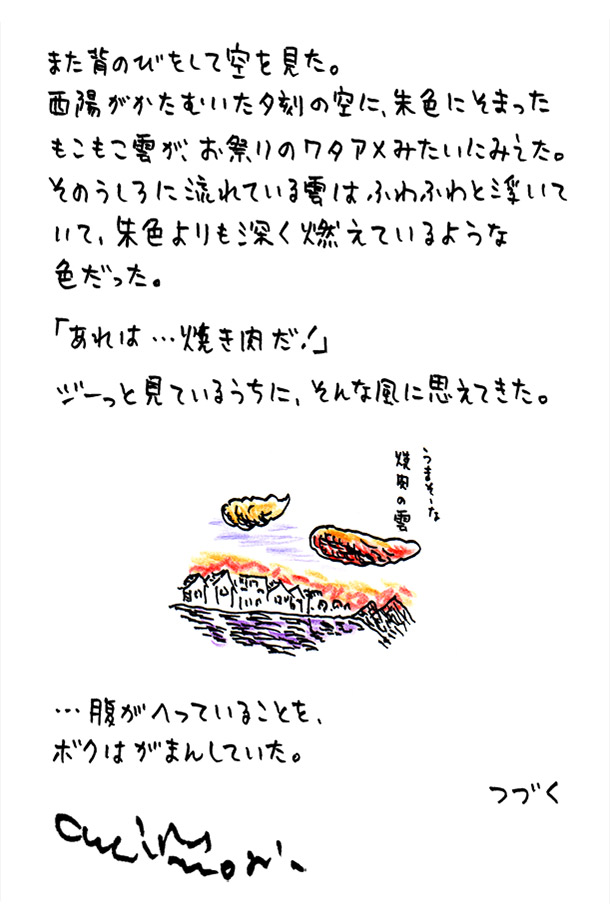 また背のびをして空を見た。
西陽がかたむいた夕刻の空に、朱色にそまった
もこもこ雲が、お祭りのワタアメみたいにみえた。
そのうしろに流れている雲は、ふわふわと浮いて
いて、朱色よりも深く燃えているような
色だった。
「あれは…焼き肉だ！」
ジーっと見ているうちに、そんな風に思えてきた。
うまそーな
焼肉の雲
…腹がへっていることを、
ボクはがまんしていた。
つづく